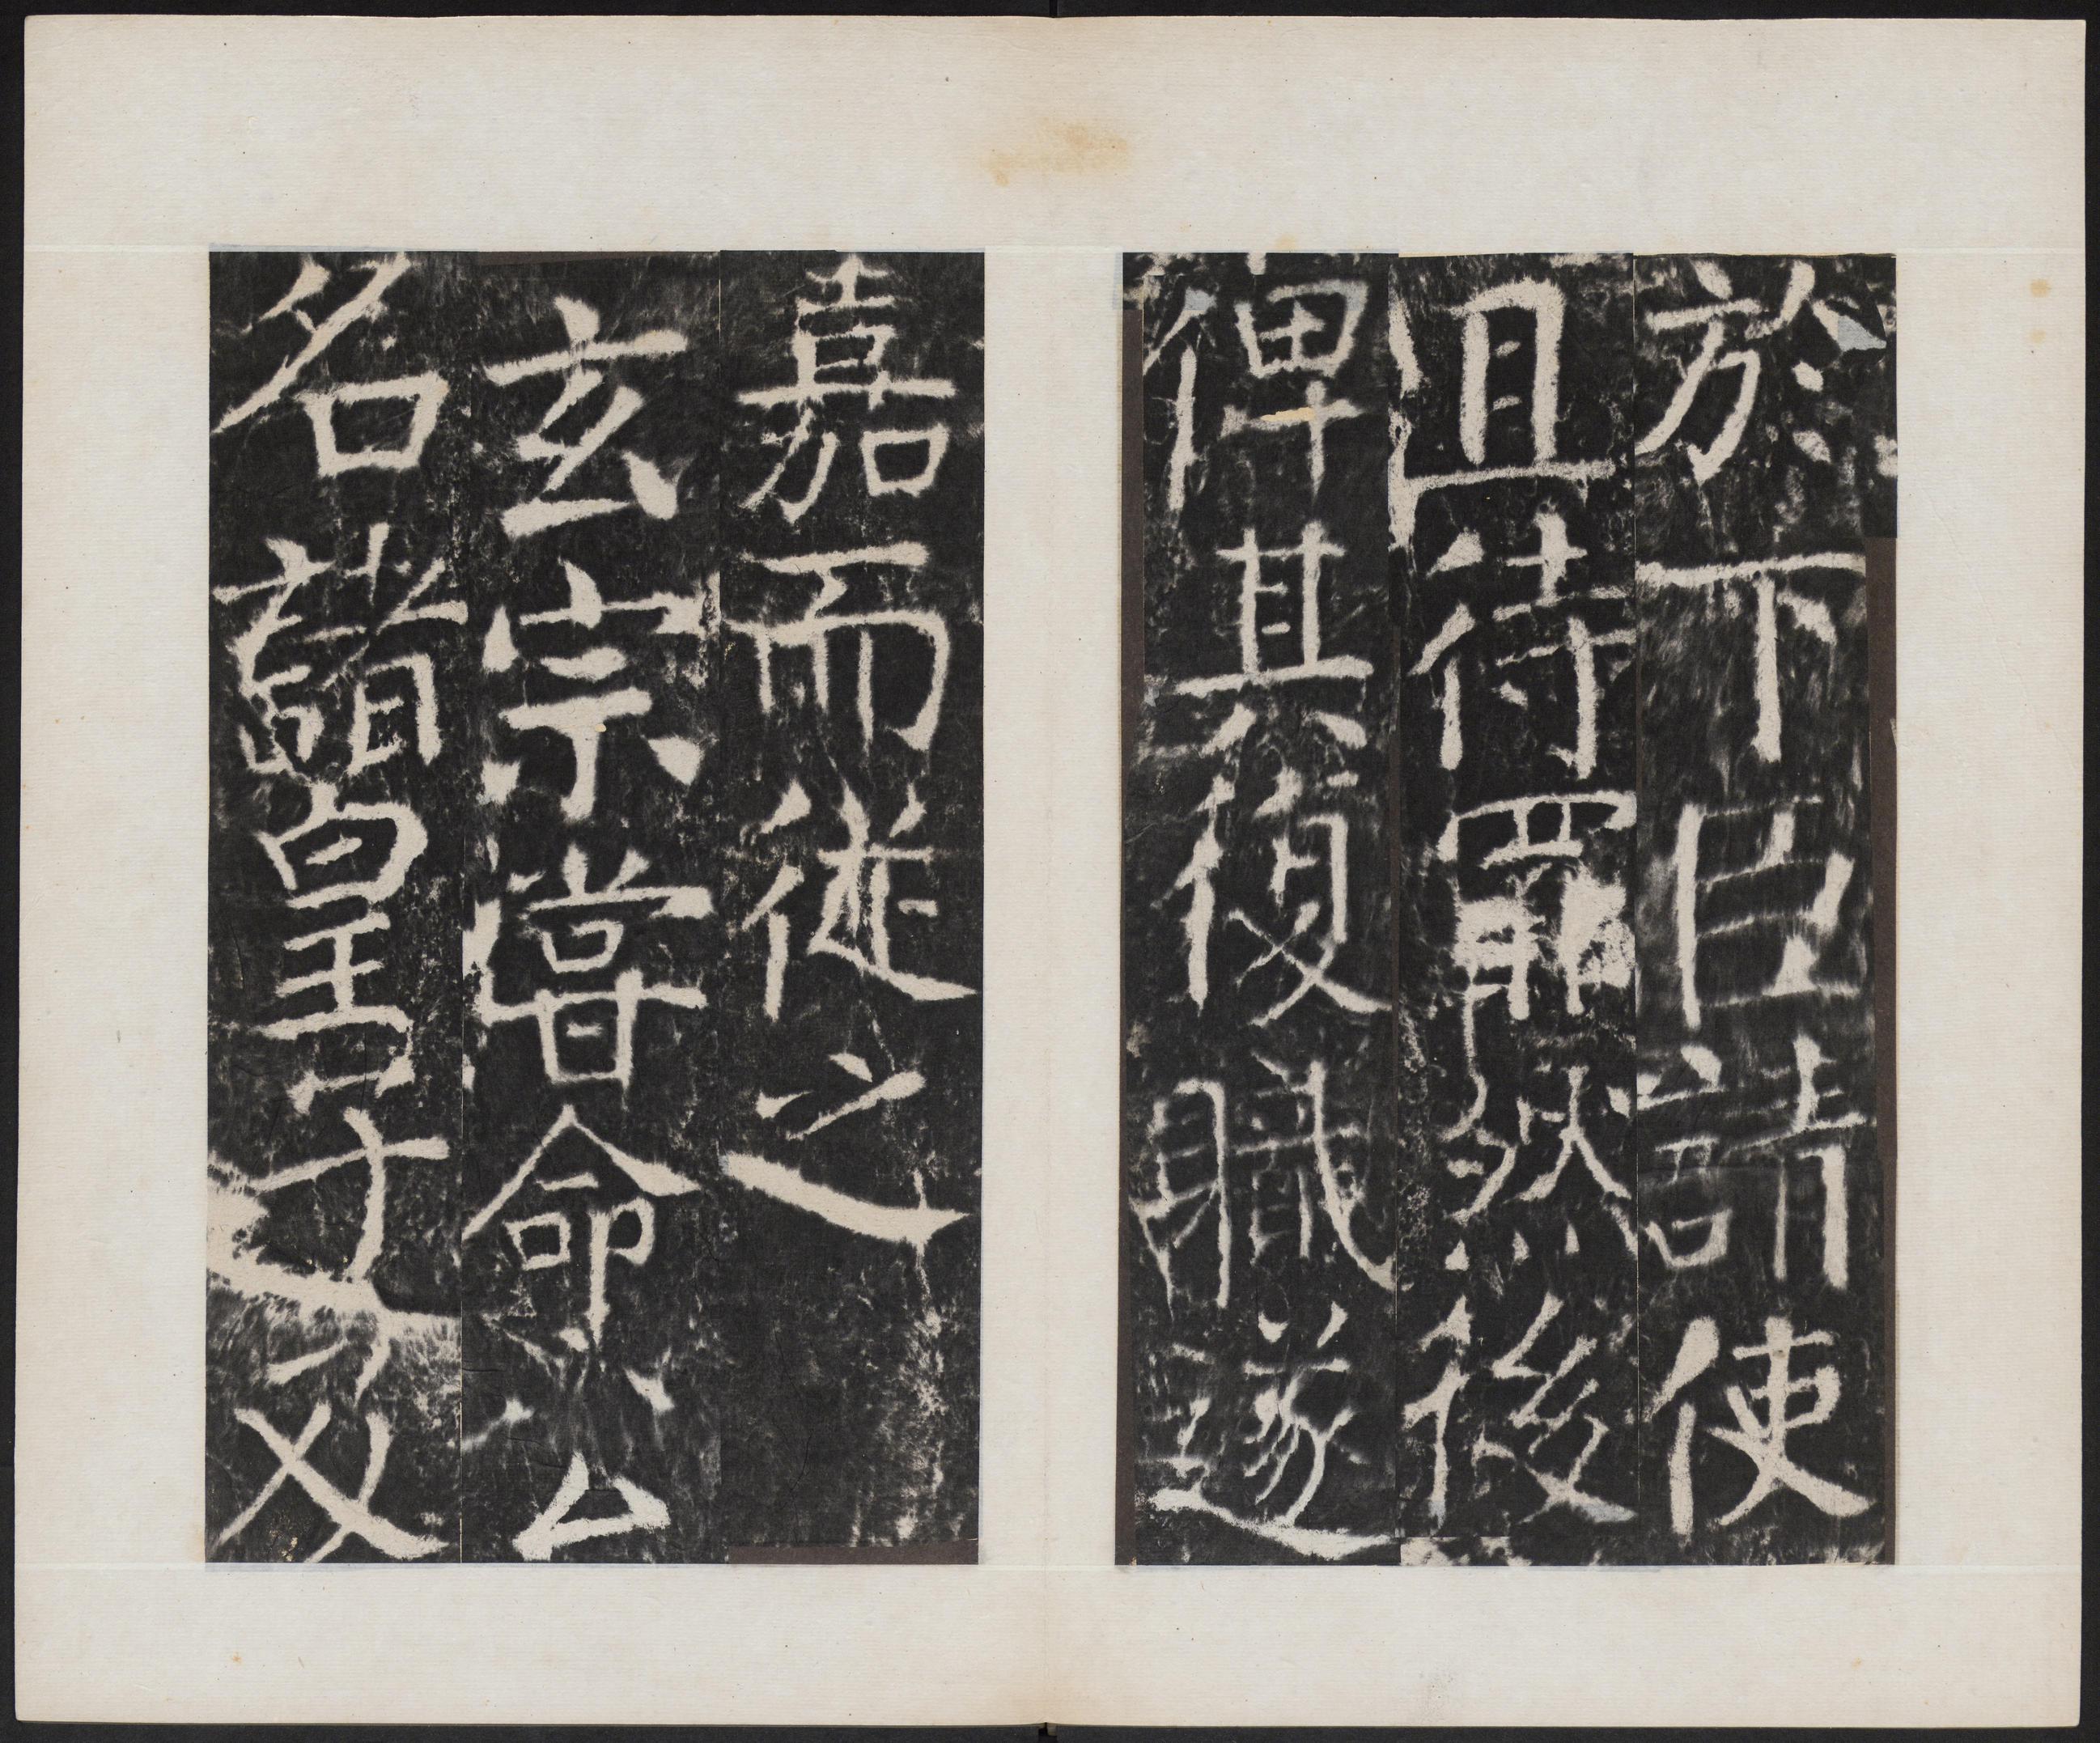 於下臣請使
且待罷然後
俾其復職遂
嘉而從之
玄宗嘗命公
名諸皇子及